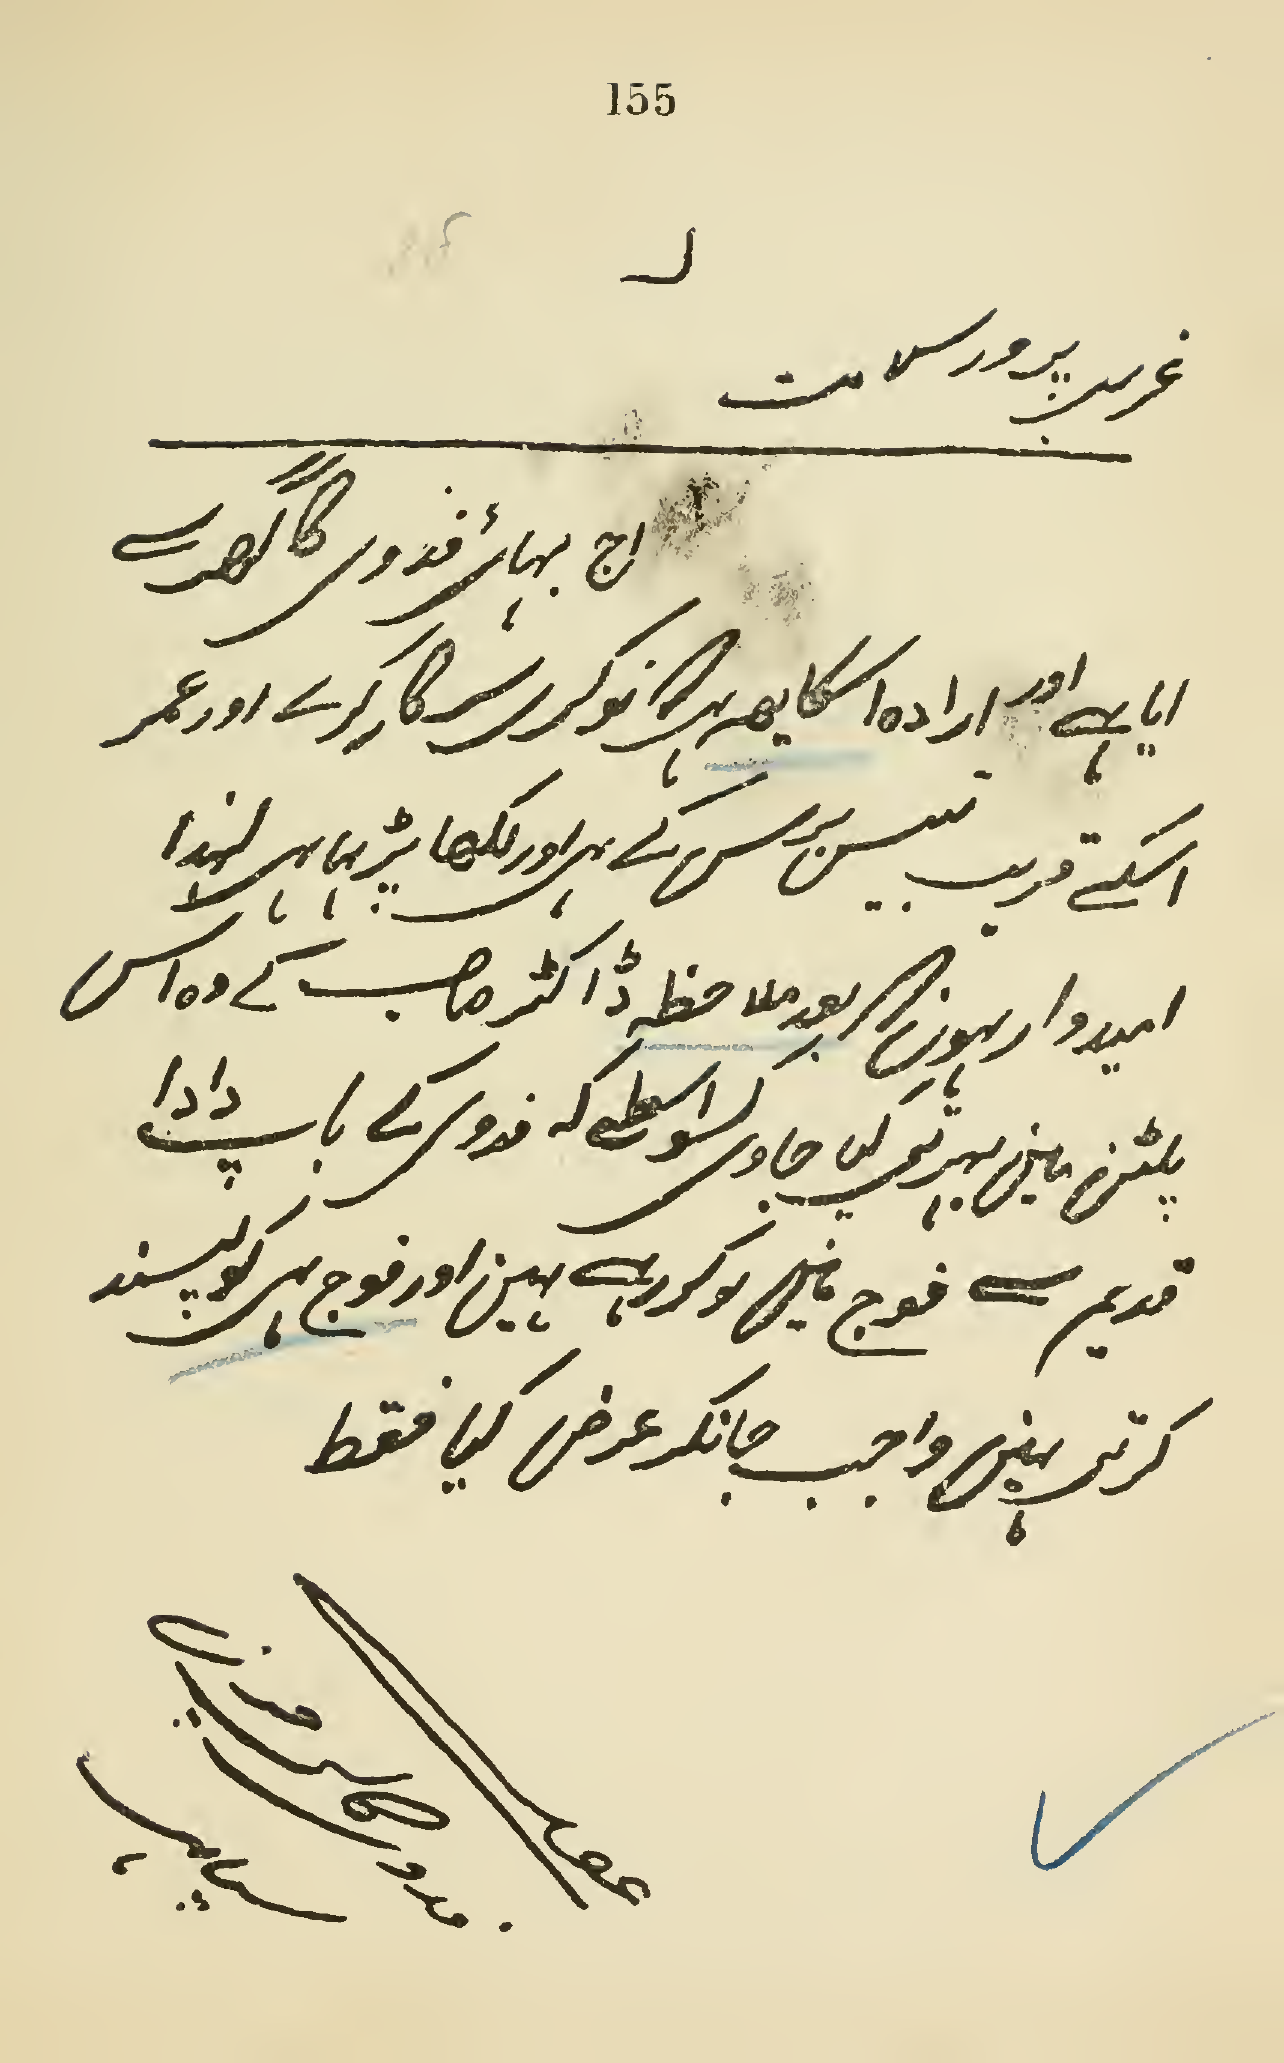 155
غریب پرور سلامت
اج بہائی فدوی کا گھر سے
ایا ہے اور ارادہ اسکا یھہ ہی کہ نوکری سرکار کرے اور عمر
اسکے قریب تیس برس کے ہی اور لکھا پڑہا ہی لہذا
امیدوار ہون کہ بعد ملاحظہ ڈاکٹر صاحب کے وہ اس
پلٹن مین بہرتی کیا جاوی کسواسطے کہ فدوی کے باپ دادا
قدیم سے فوج مین نوکر رہے ہین اور فوج ہی کو پسند
کرتی ہین واجب جانکر عرض کیا فقط
فدوی
سپاہی